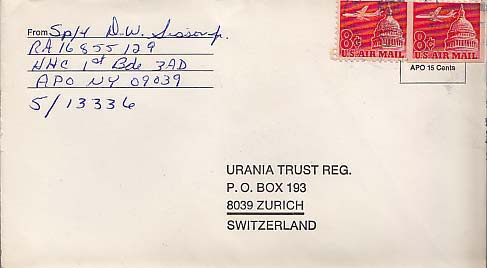 From Sp/4 D.W.
RA16855129
HHC 1st Bde 3AD
APO NY 09039
5/13336
8¢ U.S. AIR MAIL
8¢ U.S. AIR MAIL
APO 15 Cents
URANIA TRUST REG.
P. O. BOX 193
8039 ZURICH
SWITZERLAND